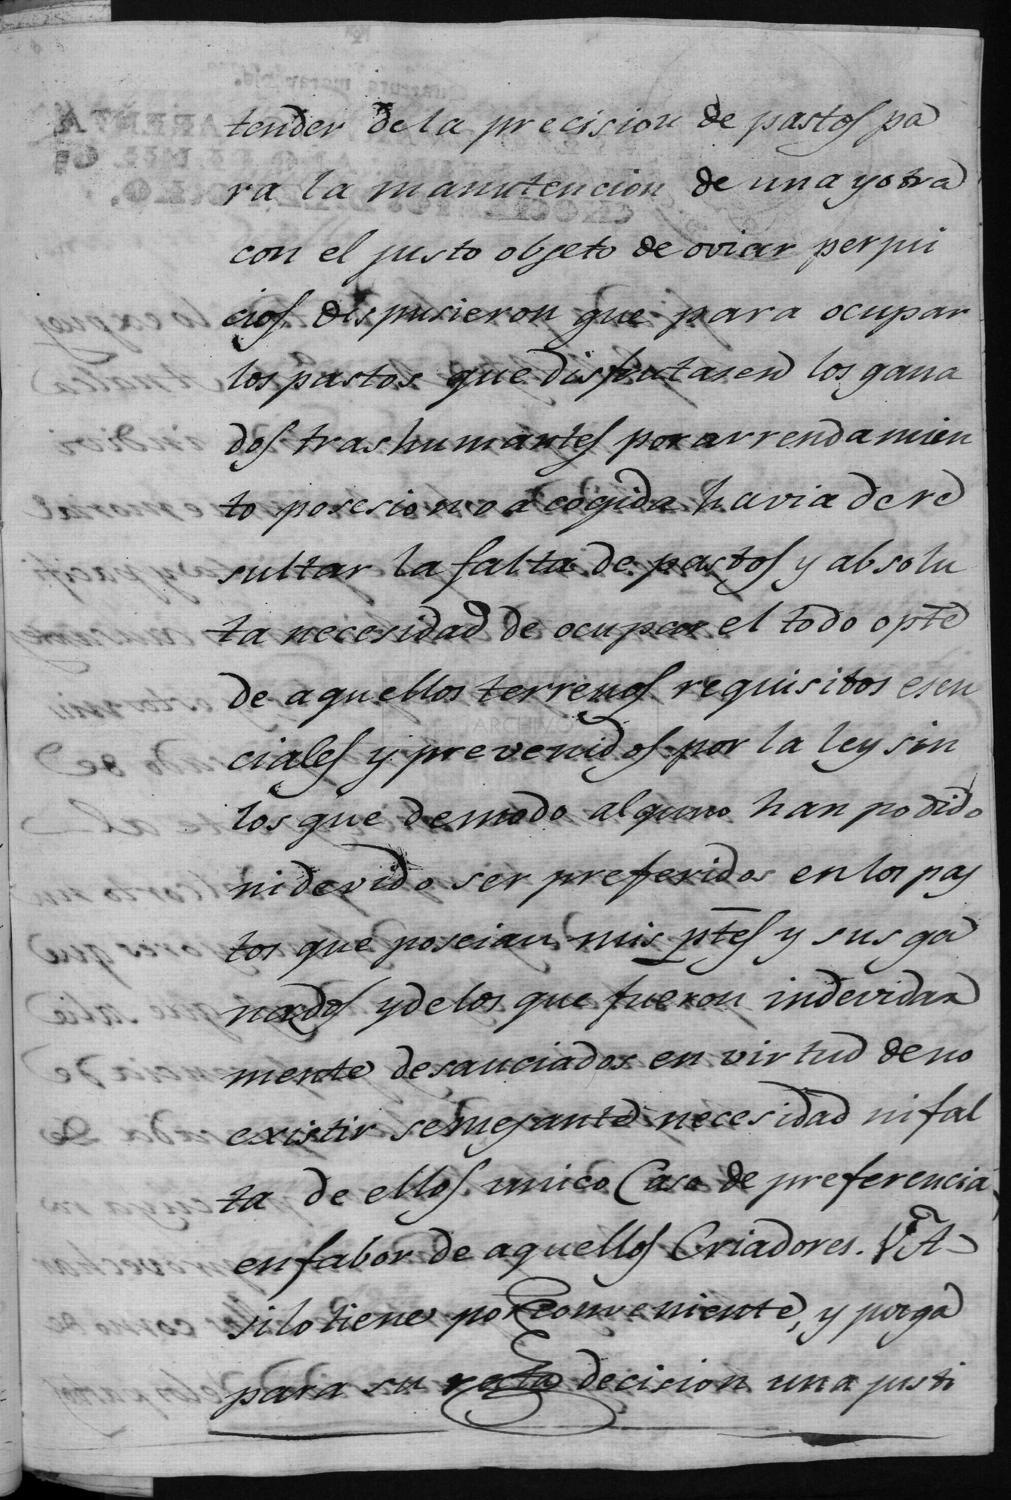 tender de la precision de pastos pa
ra la manutencion de una y otra
con el justo objeto de oviar perjui
cios dispusieron que para ocupar
los pastos que disfrutasen los gana
dos trashumantes por arrendamien
to posesion o acogida havia de re
sultar la falta de pastos y absolu
ta necesidad de ocupar el todo o pte
de aquellos terrenos requisitos esen
ciales y prevenidos por la ley sin
los que de modo alguno han podido
ni devido ser preferidos en los pas
tos que poseian mis ptes y sus ga
nados y de los que fueron indevida
mente desauciados en virtud de no
existir semejante necesidad ni fal
ta de ellos unico Caso de preferencia
en fabor de aquellos Criadores. VA
si lo tiene por conveniente, y juzga
para su recta decision una justi